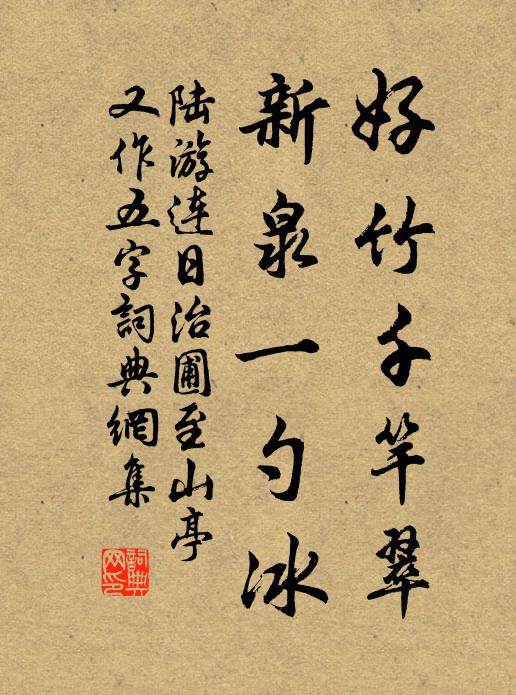 好竹千竿翠
新泉一勺冰
陆游连日治圃至山亭
又作五字詞典網集
詞典網印